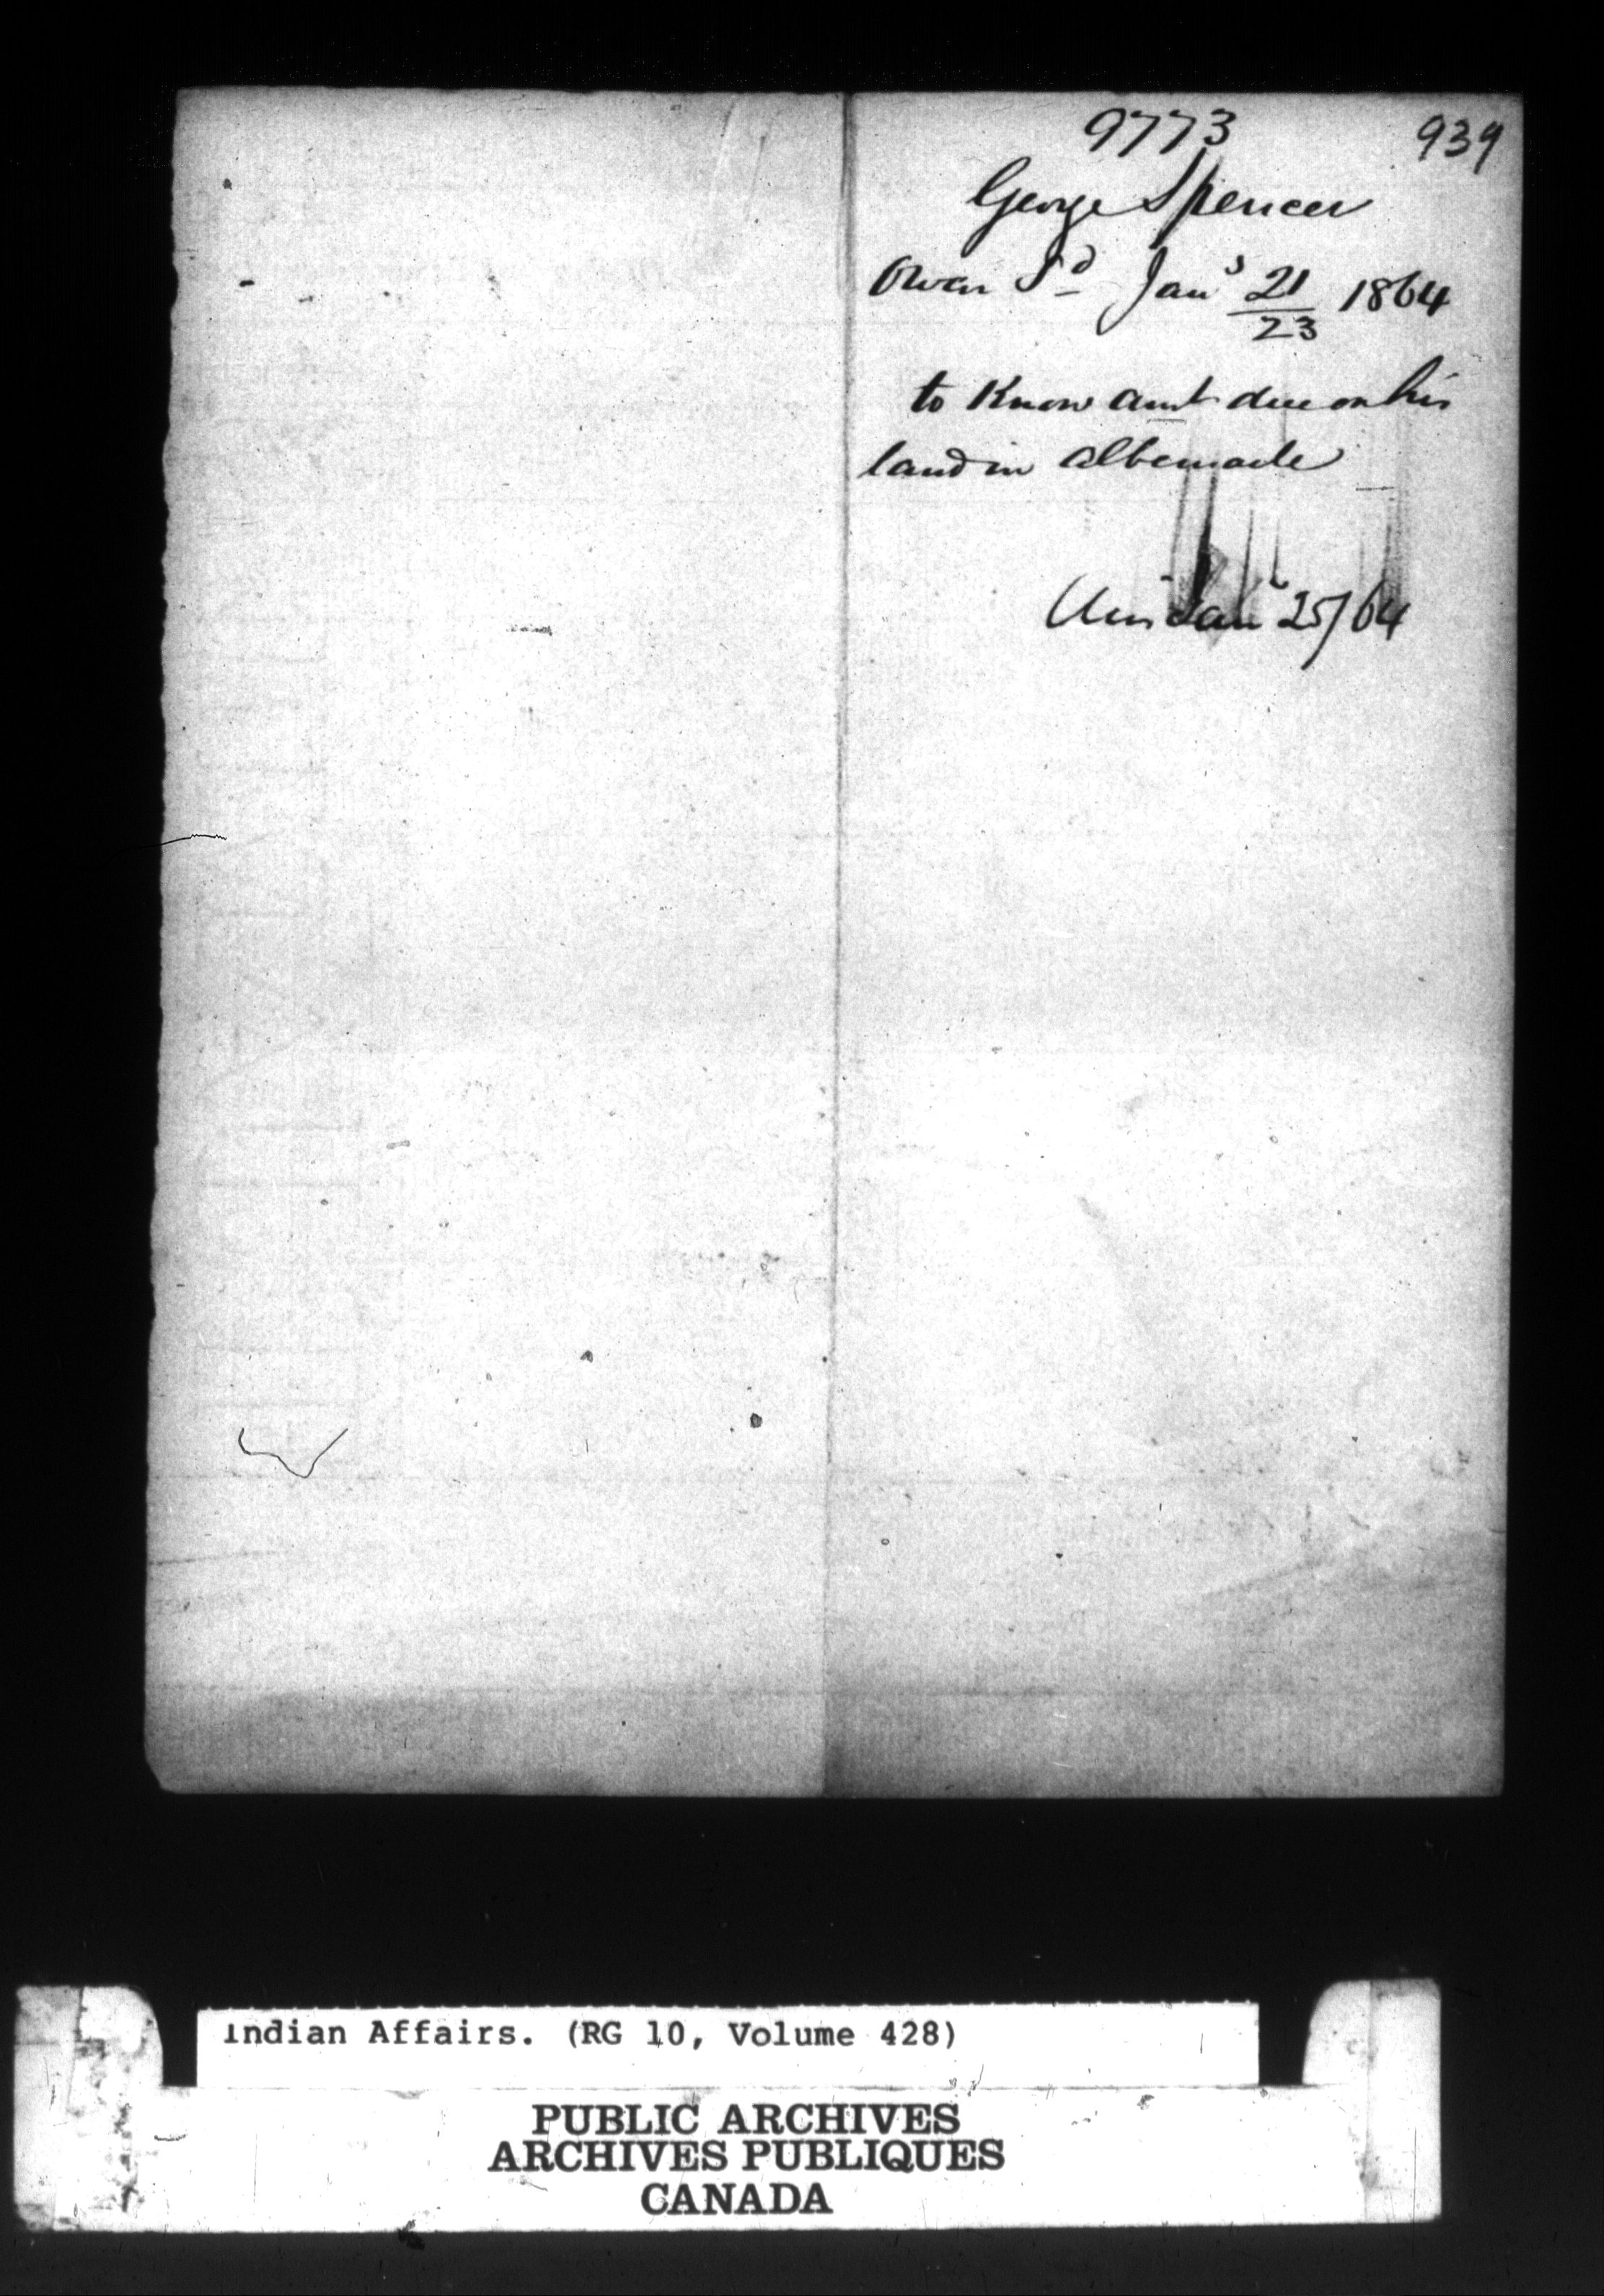 9773 939
George Spencer
Owen Sd Jany 21/23 1864
to Know amt due on his
land in albemarle
Jany 25/64
Indian Affairs. (RG 10, Volume 428)
PUBLIC ARCHIVES
ARCHIVES PUBLIQUES
CANADA